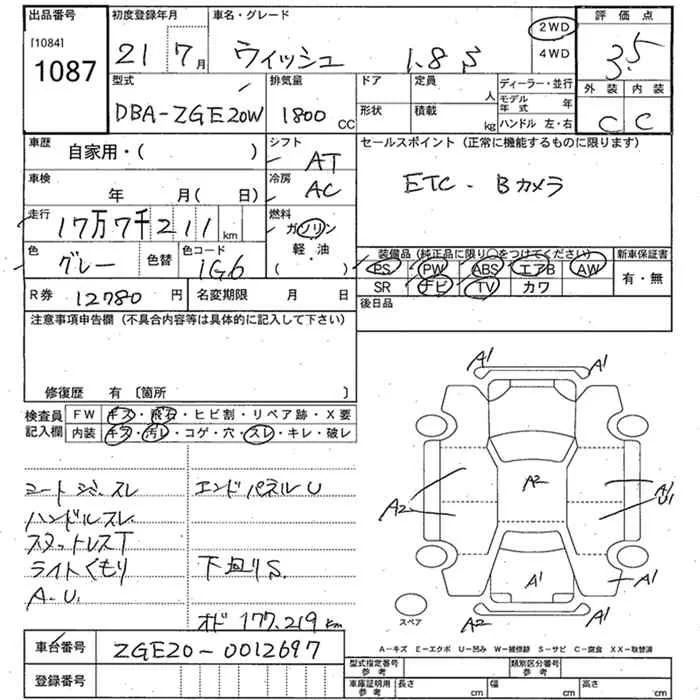 出品番号 初度登録年月 車名・グレード 評価点
[1084]
1087 21 7月 ウィッシュ 1.8 S 2WD 4WD 3.5
型式 排気量 ドア 定員 ディーラー・並行 外装 内装
DBA-ZGE20W 1800 CC 人 モデル年式 年
形状 積載 kg ハンドル 左・右 C C
車歴 自家用・( ) シフト AT セールスポイント (正常に機能するものに限ります)
車検 年 月( 日) 冷房 AC ETC・Bカメラ
走行 17万7千211km 燃料 ガソリン
軽・油
・
( )
色 グレー 色替 色コード 1G6
装備品 (純正品に限り○をつけてください) 新車保証書
PS PW ABS エアB AW 有・無
SR ナビ TV カワ
R券 12780円 名変期限 月 日 後日品
注意事項申告欄 (不具合内容等は具体的に記入して下さい)
修復歴 有 〔箇所 〕
検査員記入欄 FW キズ・飛石・ヒビ割・リペア跡・X要
内装 キズ・汚レ・コゲ・穴・スレ・キレ・破レ
シートシミ.スレ エンドパネルU
ハンドルスレ
スタットレスT
ライトくもり 下回りS.
A.U.
オド 177.219km
A1 A1
A2 A2 A1 U1
A1 A1
A2 A1
スペア
A-キズ E-エクボ U-凹み W-補修跡 S-サビ C-腐食 XX-取替済
車台番号 ZGE20-0012697
登録番号
型式指定番号 参考 類別区分番号 参考
車庫証明用 参考 長さ cm 幅 cm 高さ cm